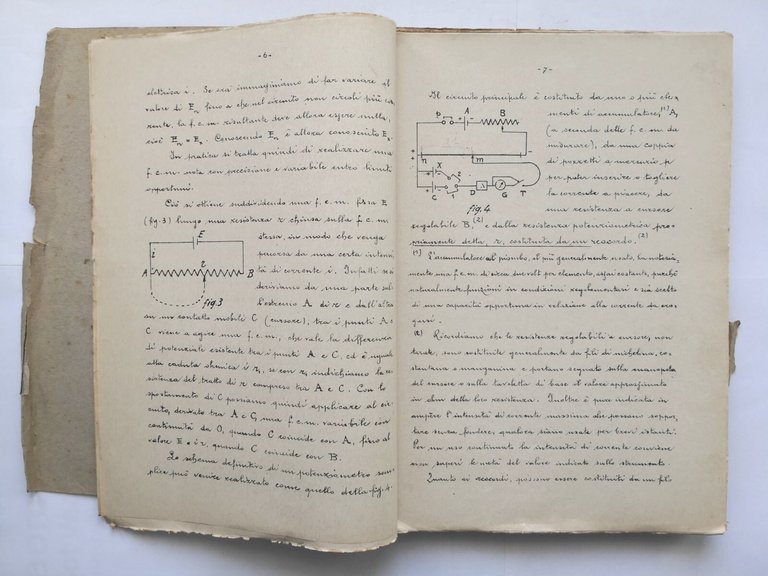 -6-
elettrica i. Se ora immaginiamo di far variare il
valore di En fino a che nel circuito non circoli più cor
rente, la f.e.m. risultante deve allora essere nulla,
cioè En = Ex. Conoscendo En è allora conosciuta Ex.
In pratica si tratta quindi di realizzare una
f.e.m. nota con precisione e variabile entro limiti
opportuni.
Ciò si ottiene suddividendo una f.e.m. fissa E
(fig. 3) lungo una resistenza r chiusa sulla f.e.m.
stessa, in modo che venga
percorsa da una certa intensi
tà di corrente i. Infatti se si
derivano da una parte sul
l'estremo A di r e dall'altra
su un contatto mobile C (cursore), tra i punti A e
C viene a agire una f.e.m., che vale la differenza
di potenziale esistente tra i punti A e C, ed è uguale
alla caduta ohmica i r1, se con r1 indichiamo la re
sistenza del tratto di r compreso tra A e C. Con lo
spostamento di C possiamo quindi applicare al cir
cuito, derivato tra A e C, una f.e.m. variabile con
continuità da 0, quando C coincide con A, fino al
valore E = i r, quando C coincide con B.
Lo schema definitivo di un potenziometro sem
plice può venire realizzato come quello della fig. 4.
E
i
A
r
B
fig.3
-7-
Il circuito principale è costituito da uno o più ele
menti di accumulatore, (1) A,
(a seconda delle f.e.m. da
misurare), da una coppia
di pozzetti a mercurio p
per poter inserire o togliere
la corrente a piacere, da
una resistenza a cursore
regolabile B, (2) e dalla resistenza potenziometrica pro
priamente detta, r, costituita da un reocordo. (2)
P
A
B
n
m
X
2
C
1
D
G
T
fig.4
(1) L'accumulatore al piombo, il più generalmente usato, ha notoria
mente una f.e.m. di circa due volt per elemento, assai costante, purchè
naturalmente funzioni in condizioni regolamentari e sia scelto
di una capacità opportuna in relazione alla corrente da ero
garsi.
(2) Ricordiamo che le resistenze regolabili a cursore, non
tarate, sono costituite generalmente da fili di nichelina, co
stantana o manganina e portano segnato sulla manopola
del cursore o sulla tavoletta di base il valore approssimato
in ohm della loro resistenza. Inoltre è pure indicata in
ampère l'intensità di corrente massima che possono soppor
tare senza fondere, qualora siano usate per brevi istanti.
Per un uso continuato la intensità di corrente conviene
non superi la metà del valore indicato sullo strumento.
Quanto ai reocordi, possono essere costituiti da un filo